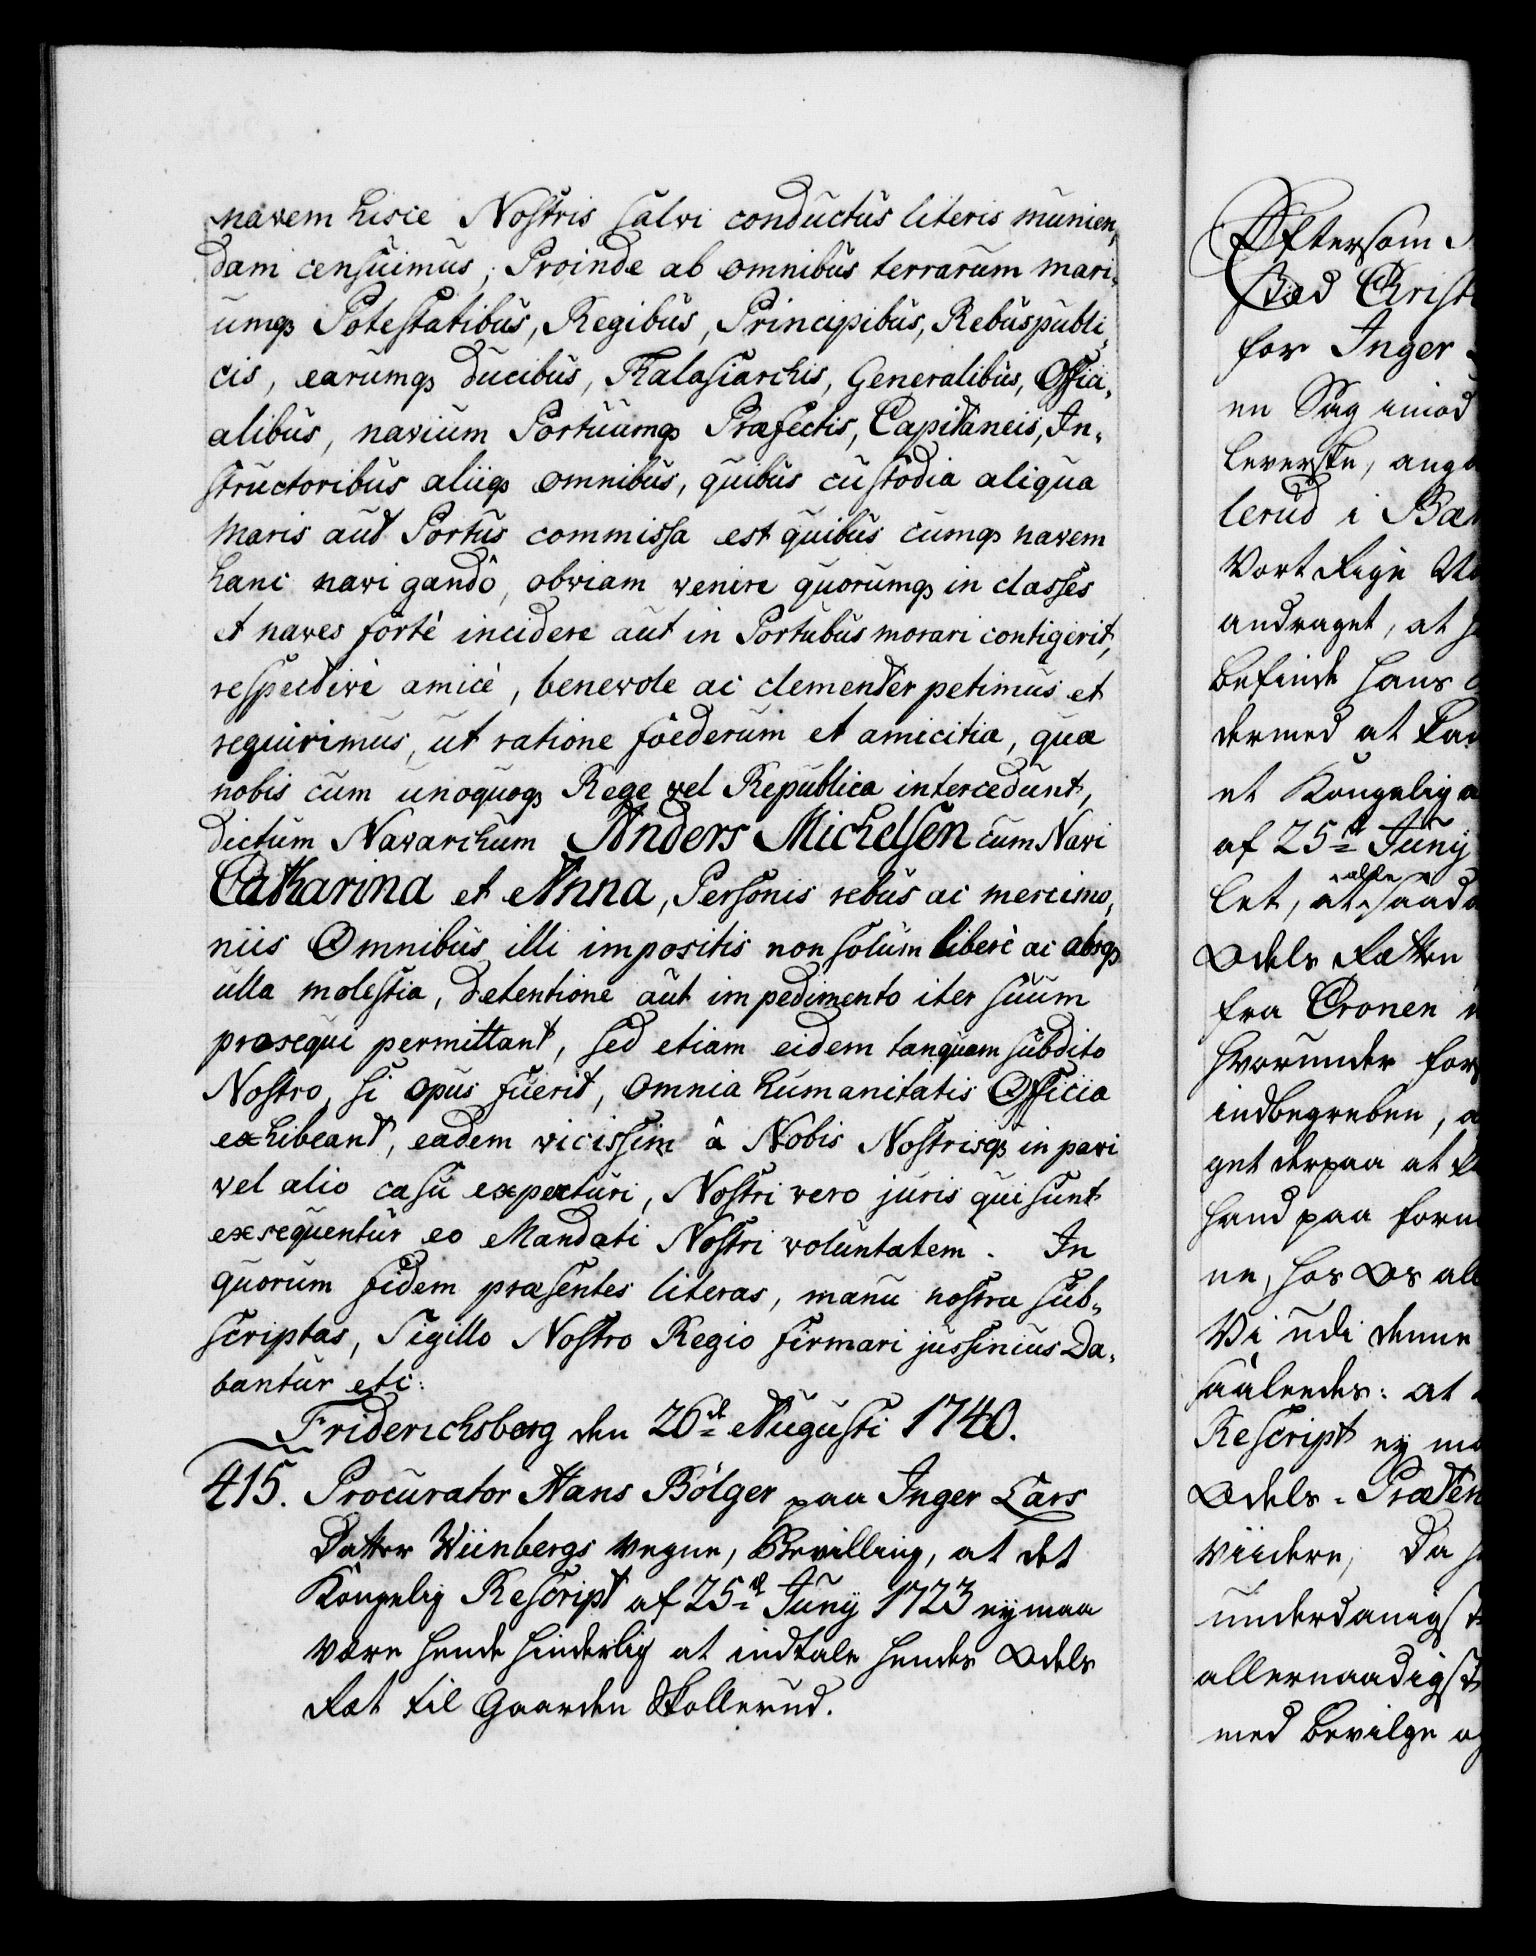 navem hisce Nostris salvi conductus literis munien,
dam censuimus, Proinde ab omnibus terrarum mari,
umqs Potestatibus, Regibus, Principibus, Rebuspubli,
cis, earumqs ducibus, Thalasiarchis, Generalibus, Offici,
alibus, navium Portuumqs Præfectis, Capitaneis, In,
structoribus aliiqs omnibus, quibus custodia aliqua
Maris aut Portus commissa est quibus cumqs navem
hanc navi gandô, obviam venire quorumqs in classes
et naves fortè incidere aut in Portubus morari contigerit,
respectivè amicè, benevole ac clementer petimus et
requirimus, ut ratione foederum et amicitiæ, quæ
nobis cum unoquoqs Rege vel Republica intercedunt,
dictum Navarchum Anders Michelsen cum Navi
Catharina et Anna, Personis rebus ac mercimo,
niis Omnibus illi impositis non solum liberè ac absqs
ulla molestia, detentione aut impedimento iter suum
prosequi permittant, sed etiam eidem tanquam subdito
Nostro, si opus fuerit, omnia humanitatis Officia
exhibeant, eadem vicissim â Nobis Nostrisqs in pari
vel alio casu experturi, Nostri vero juris qui sunt
exsequentur eo Mandati Nostri voluntatem. In
quorum fidem præsentes literas, manu nostra sub,
scriptas, Sigillo Nostro Regio firmari jussimus Da,
bantur etc:
Friderichsberg den 26de Augusti 1740.
415. Procurator Hans Bölger paa Inger Lars
Datter Wiinbergs Vegne, Bevilling, at det
Kongelig Rescript af 25de Juny 1723 ey maa
være hende hinderlig at indtale hendes Odels
Ret til Gaarden Skollerud.
Eftersom
Bod Christ
for Inger
en Sag imod
leverske, ang
lerud i Bæ
Vort Rige
andraget, at
befinde hans
dermed at
et Kongelig
af 25de Juny
alle
let, at saad
Odels Retten
fra Cronen
hvorunder for
indbegreben,
get derpaa at
hand paa form
ne, hos Os all
Vi udi denne
saaledes: at
Rescript ey ma
Odels-Præten
viidere, Da
underdanigst
allernaadigst
med bevilge og